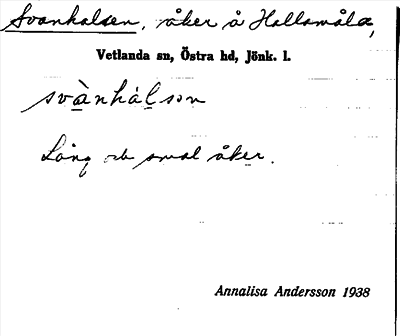 Svanhalsen, åker å Hallsmåla,
Vetlanda sn, Östra hd, Jönk. l.
svànhálsən
Lång och smal åker.
Annalisa Andersson 1938